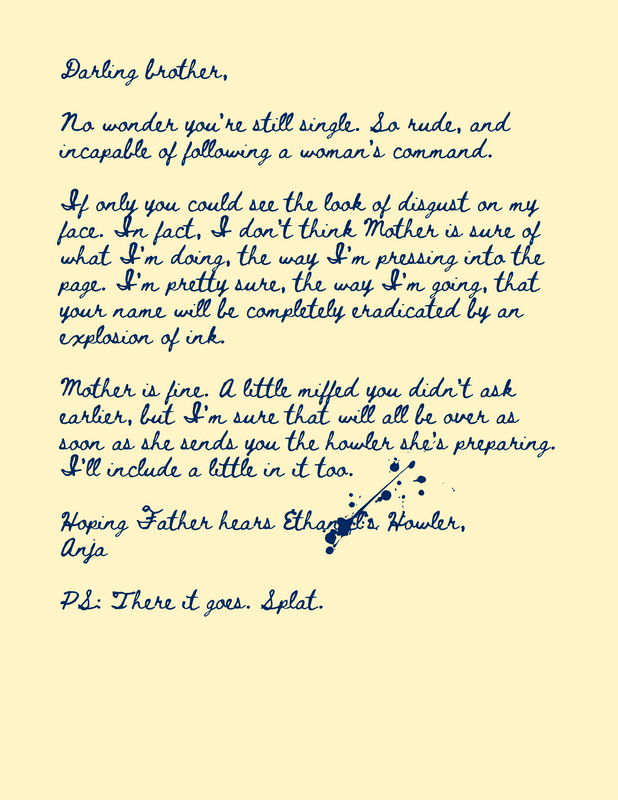 Darling brother,
No wonder you're still single. So rude, and
incapable of following a woman's command.
If only you could see the look of disgust on my
face. In fact, I don't think Mother is sure of
what I'm doing, the way I'm pressing into the
page. I'm pretty sure, the way I'm going, that
your name will be completely eradicated by an
explosion of ink.
Mother is fine. A little miffed you didn't ask
earlier, but I'm sure that will all be over as
soon as she sends you the howler she's preparing.
I'll include a little in it too.
Hoping Father hears Howler,
Anja
PS: There it goes. Splat.